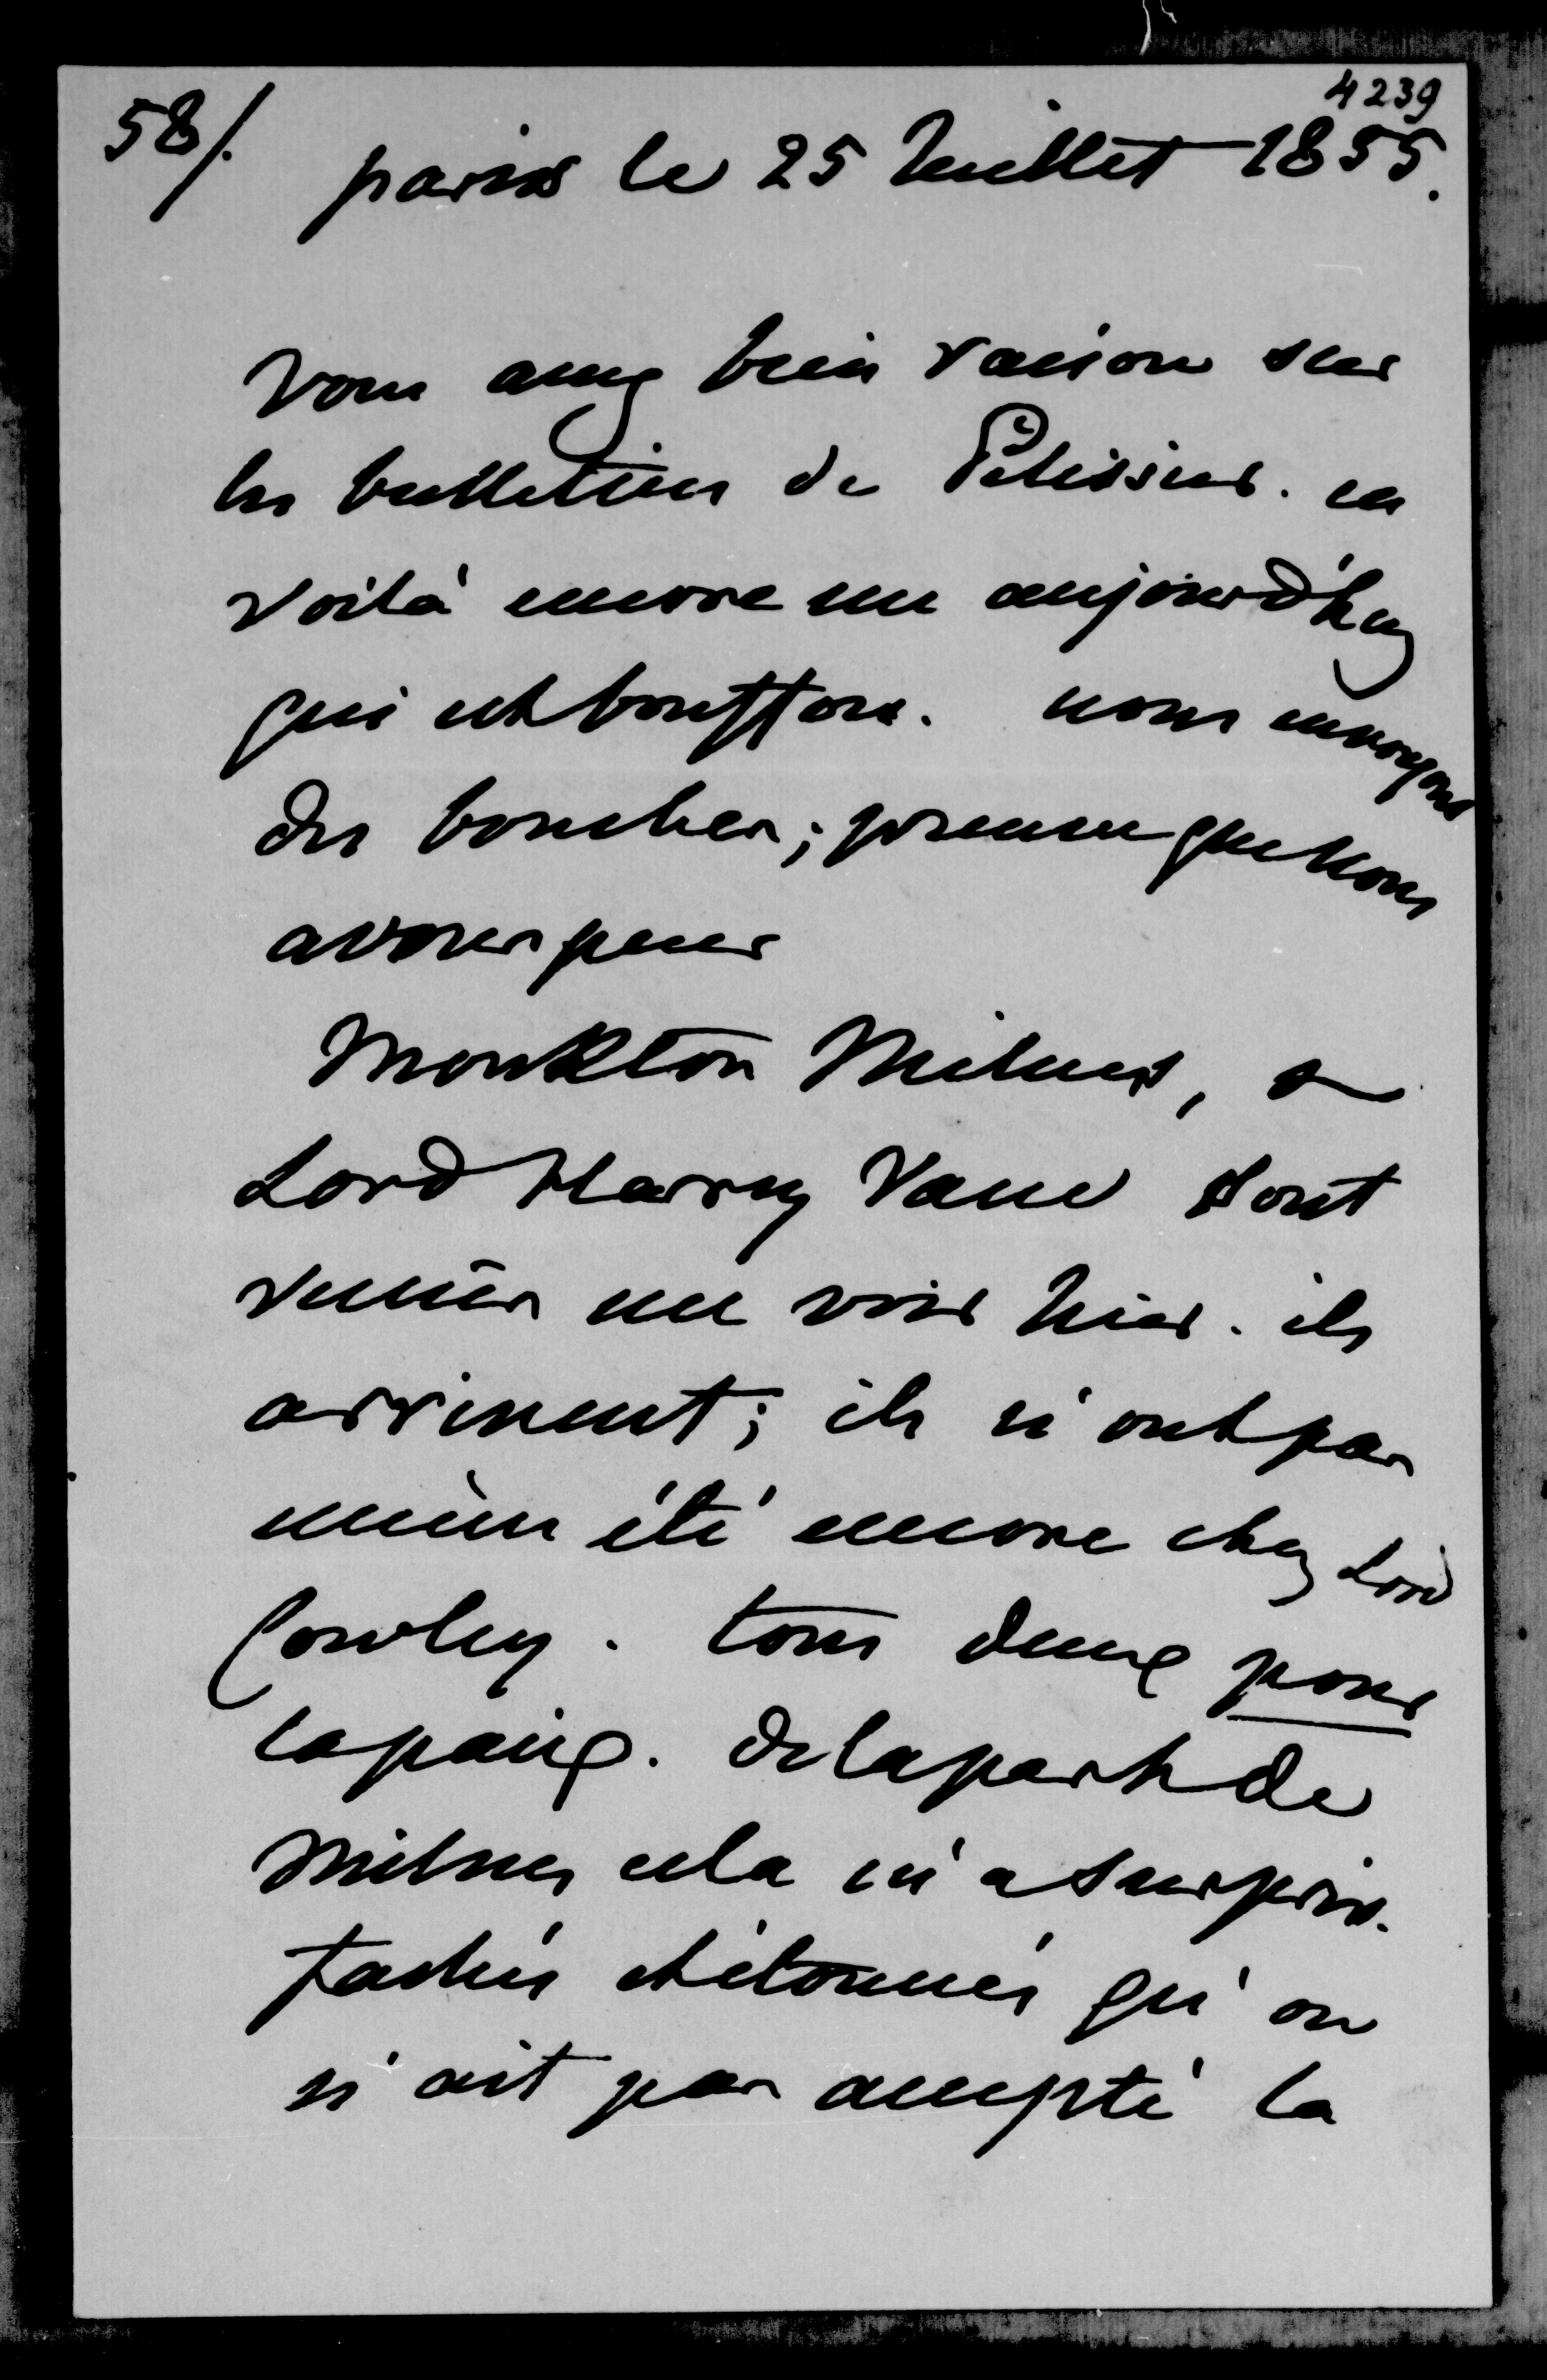 4239
58/. paris le 25 Juillet 1855.
vous avez bien raison sur
les bulletins de Pélissier. en
voilà encore un aujourd'huy
qui est bouffon. nous envoyons
des bombes; preuve que nous
avons peur
Monkton Milnes, &
Lord Harry Vane sont
venus me voir hier. ils
arrivent; ils n'ont pas
même été encore chez Lord
Cowley. tous deux pour
la paix. de la part de
Milnes cela m'a surpris.
fachés et étonnés qu'on
n'ait pas accepté la